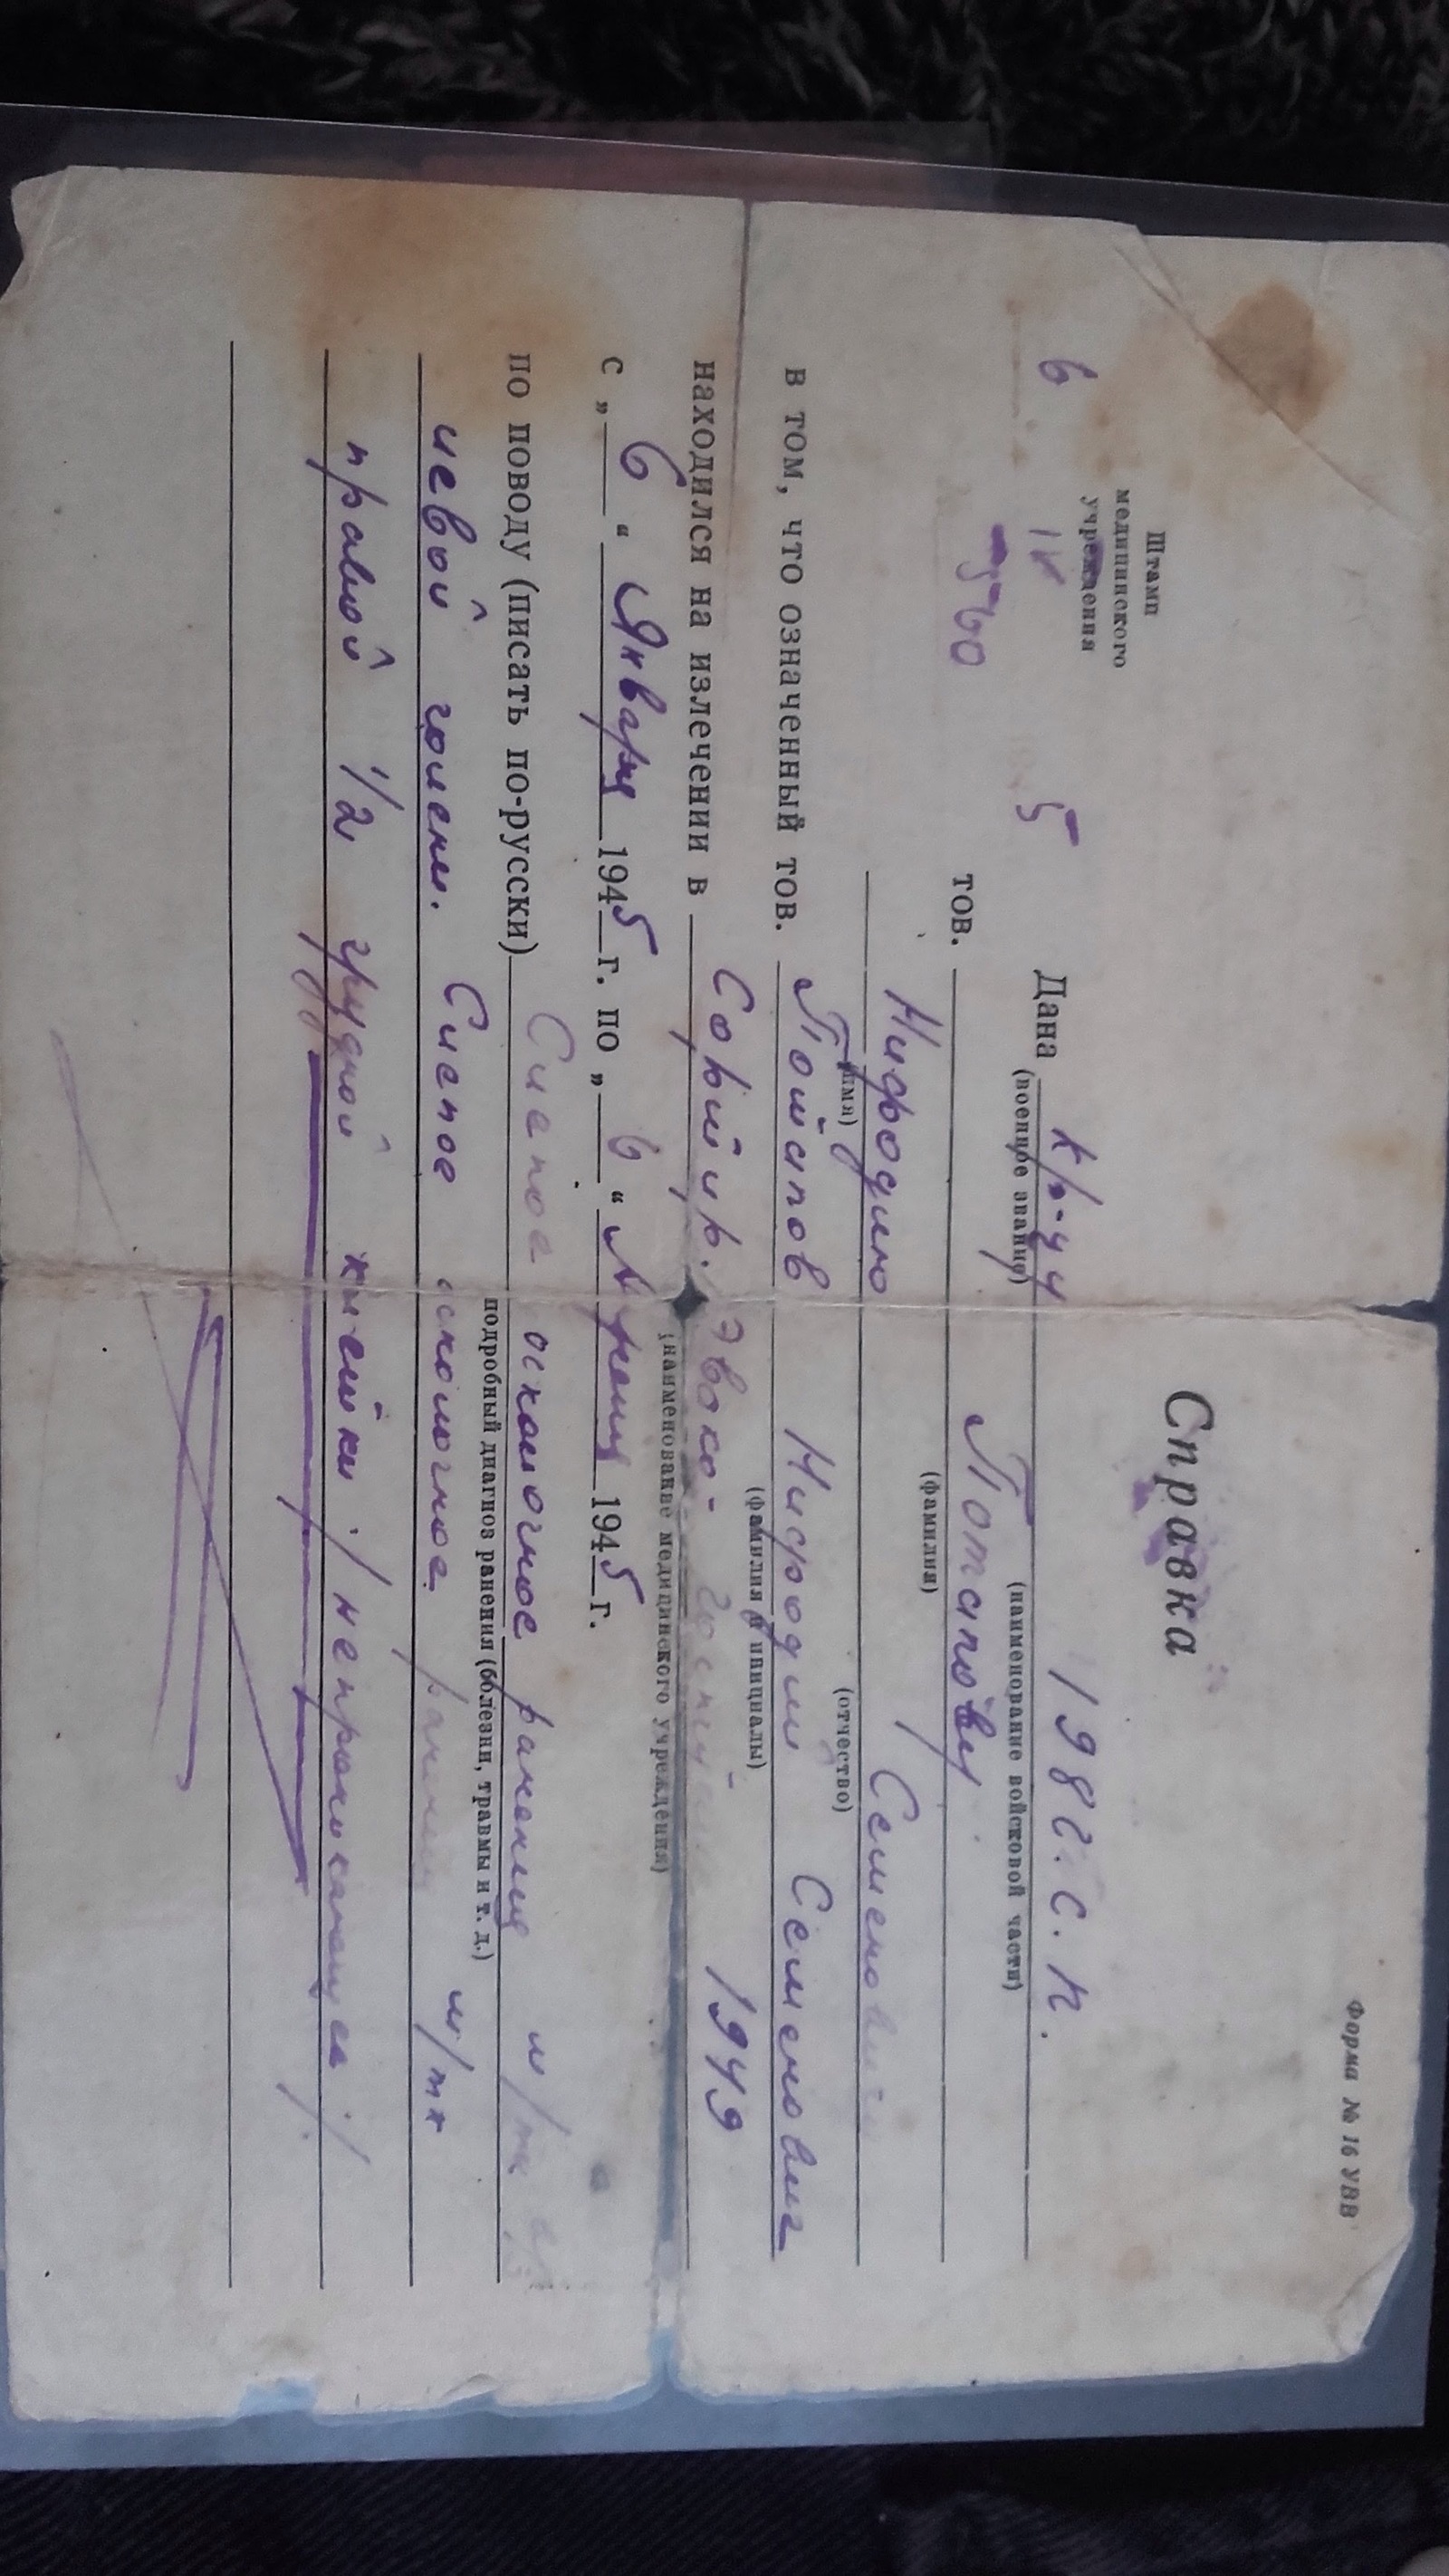 Форма № 16 УВВ
Справка
Штамп
медицинского
учреждения
6 IV 5
560
Дана кр-цу 198 г. с. п.
(военное звание) (наименование войсковой части)
тов. Потапову
(фамилия)
Нифодию Семенович
(имя) (отчество)
в том, что означенный тов. Потапов Нифодий Семенович
(фамилия и инициалы)
находился на излечении в Сортир. Эвако- госпитале 1949
(наименование медицинского учреждения)
с „ 6 “ Января 1945 г. по „ 6 “ Апреля 1945 г.
по поводу (писать по-русски) Слепое осколочное ранение м/тк
подробный диагноз ранения (болезни, травмы и т. д.)
левой голени. Слепое осколочное ранение м/тк
правой 1/2 грудной клетки ./ непроникающее ./